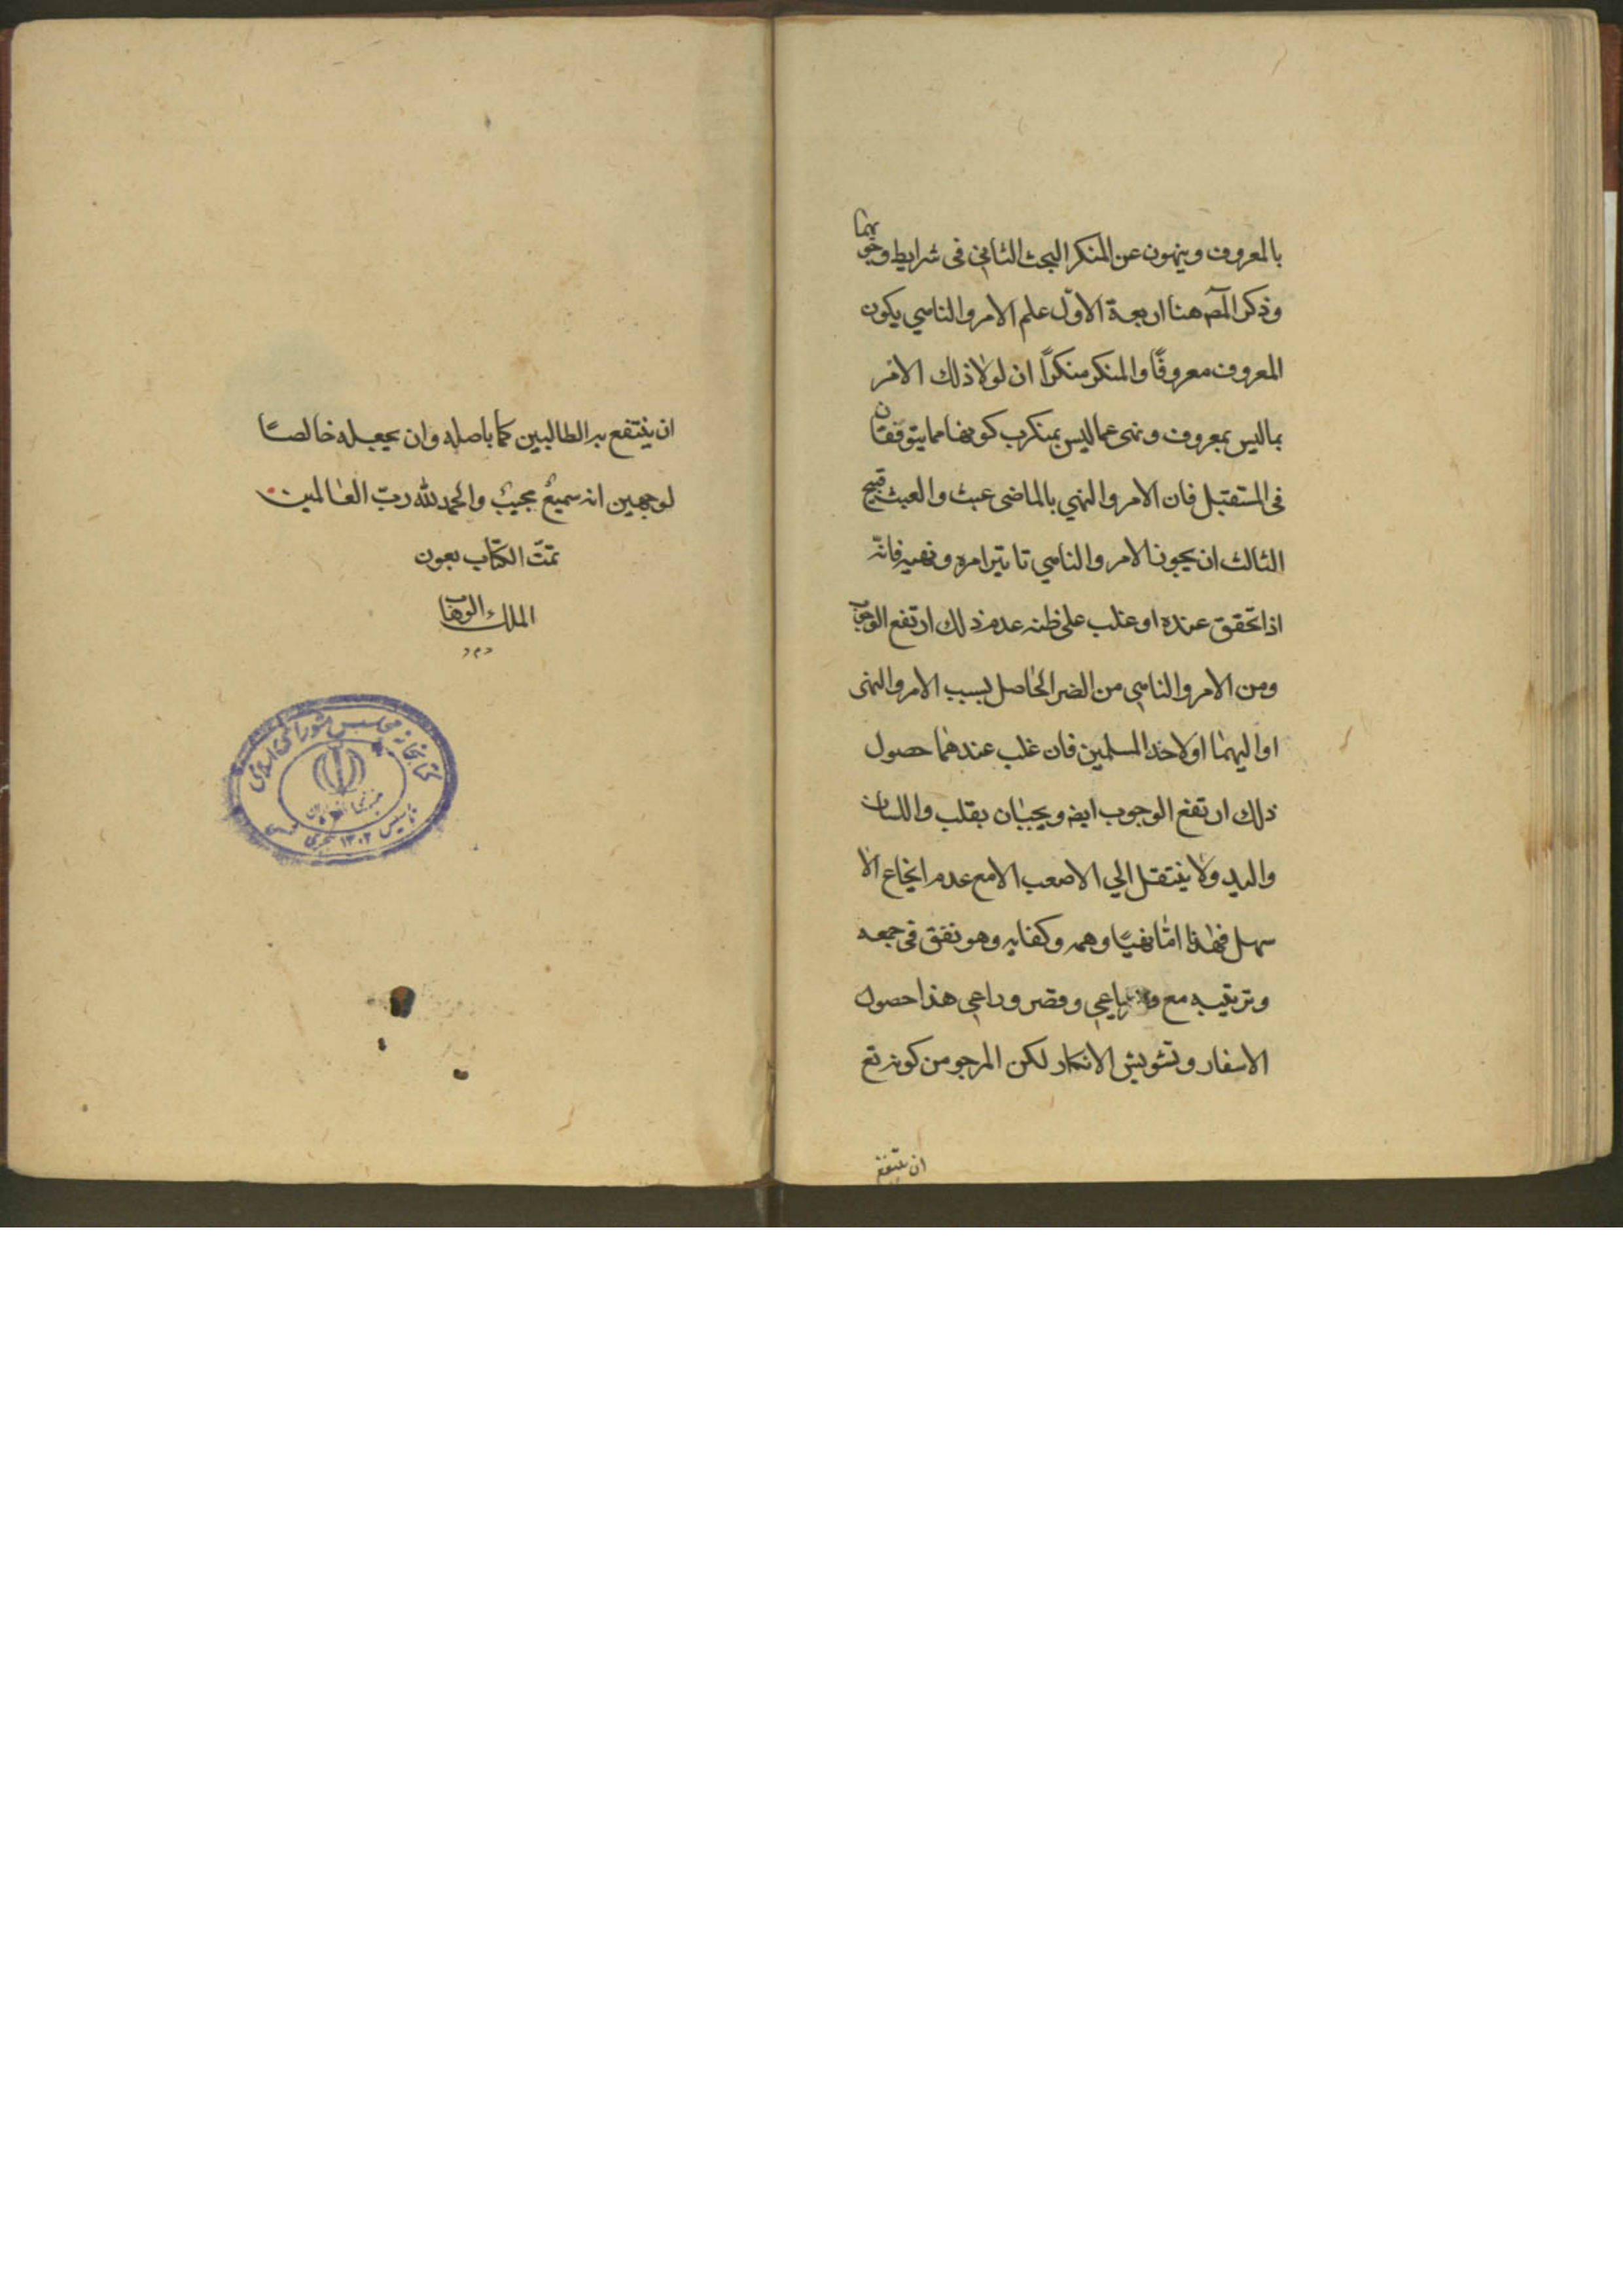 بالمعروف وينهون عن المنكر البحث الثاني فى شرايط وجوبهما
وذكر المصه هنا اربعة الاوّل علم الامر والناهي يكون
المعروف معروفًا والمنكر منكرًا ان لولا ذلك الامر
بماليس بمعروف ونهى عماليس بمنكر ب كونهما مما يتوقعان
فى المستقبل فان الامر والنهي بالماضى عبث والعبث قبيح
الثالث ان يجوز الامر والناهي تاثير امره ونهيه فانّه
اذا تحقق عنده او غلب على ظنه عدم ذلك ارتفع الوجوب
ومن الامر والناهي من الضر الحاصل بسبب الامر والنهى
او اليهما او لاحد المسلمين فان غلب عندهما حصول
ذلك ارتفع الوجوب ايضه ويجبان بقلب واللسان
واليد ولا ينتقل الي الاصعب الا مع عدم انجاع الا
سهل فهذا وكفايه وهو فى جمعه
وترتيبه مع هذا حصول
الاسفار وتشويش الافكار لكن المرجو من كونه تع
ان ينتفع
ان ينتفع به الطالبين كما باصله وان يجعله خالصًا
لوجهين انه سميعٌ مجيبٌ والحمد لله ربّ العالمين
تمّت الكتاب بعون
الملك الوهاب
كتابخانه مجلس شوراى اسلامى
تاسيس ١٣٠٢ هجرى شمسى